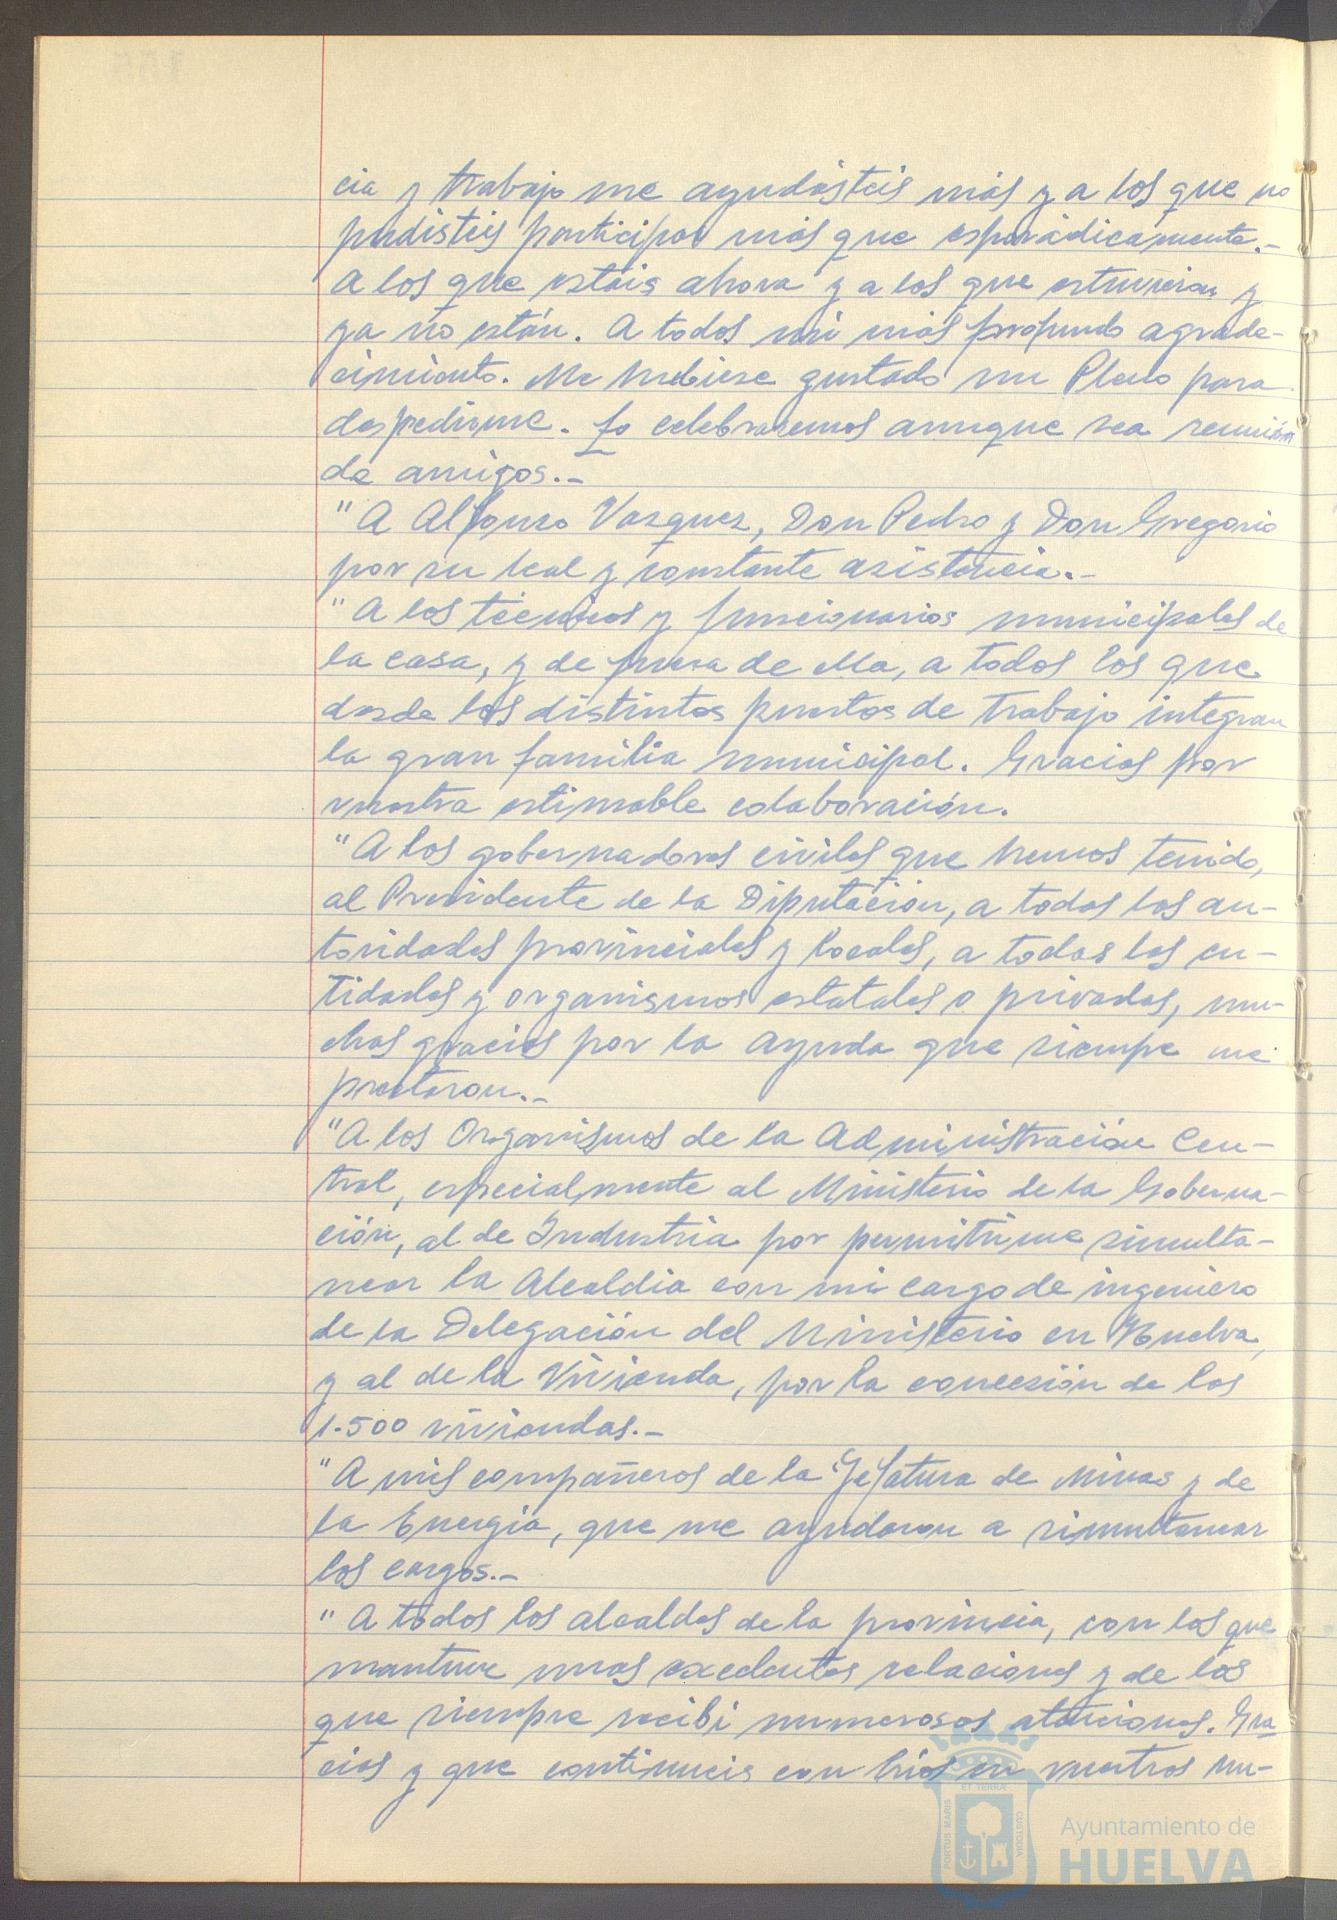 cia y trabajo me ayudásteis más y a los que no
pudísteis participar más que esporádicamente.-
A los que estáis ahora y a los que estuvieron y
ya no están. A todos mi más profundo agrade-
cimiento. Me hubiese gustado un Pleno para
despedirme. Lo celebraremos aunque sea reunión
de amigos.-
"A Alfonso Vazquez, Don Pedro y Don Gregorio
por su leal y constante asistencia.-
"A los técnicos y funcionarios municipales de
la casa, y de fuera de ella, a todos los que
desde los distintos puestos de trabajo integran
la gran familia municipal. Gracias por
vuestra estimable colaboración.
"A los gobernadores civiles que hemos tenido,
al Presidente de la Diputación, a todas las au-
toridades provinciales y locales, a todas las en-
tidades y organismos estatales o privados, mu-
chas gracias por la ayuda que siempre me
prestaron.-
"A los Organismos de la Administración Cen-
tral, especialmente al Ministerio de la Goberna-
ción, al de Industria por permitirme simulta-
near la Alcaldia con mi cargo de ingeniero
de la Delegación del Ministerio en Huelva,
y al de la Vivienda, por la concesión de las
1.500 viviendas.-
"A mis compañeros de la Jefatura de Minas y de
la Energia, que me ayudaron a simultanear
los cargos.-
"A todos los alcaldes de la provincia, con los que
mantuve unas excelentes relaciones y de los
que siempre recibí numerosos atenciones. Gra
cias y que continueis con bríos en vuestros mu-
PORTUS MARIS
ET TERRAE
CUSTODIA
Ayuntamiento de
HUELVA